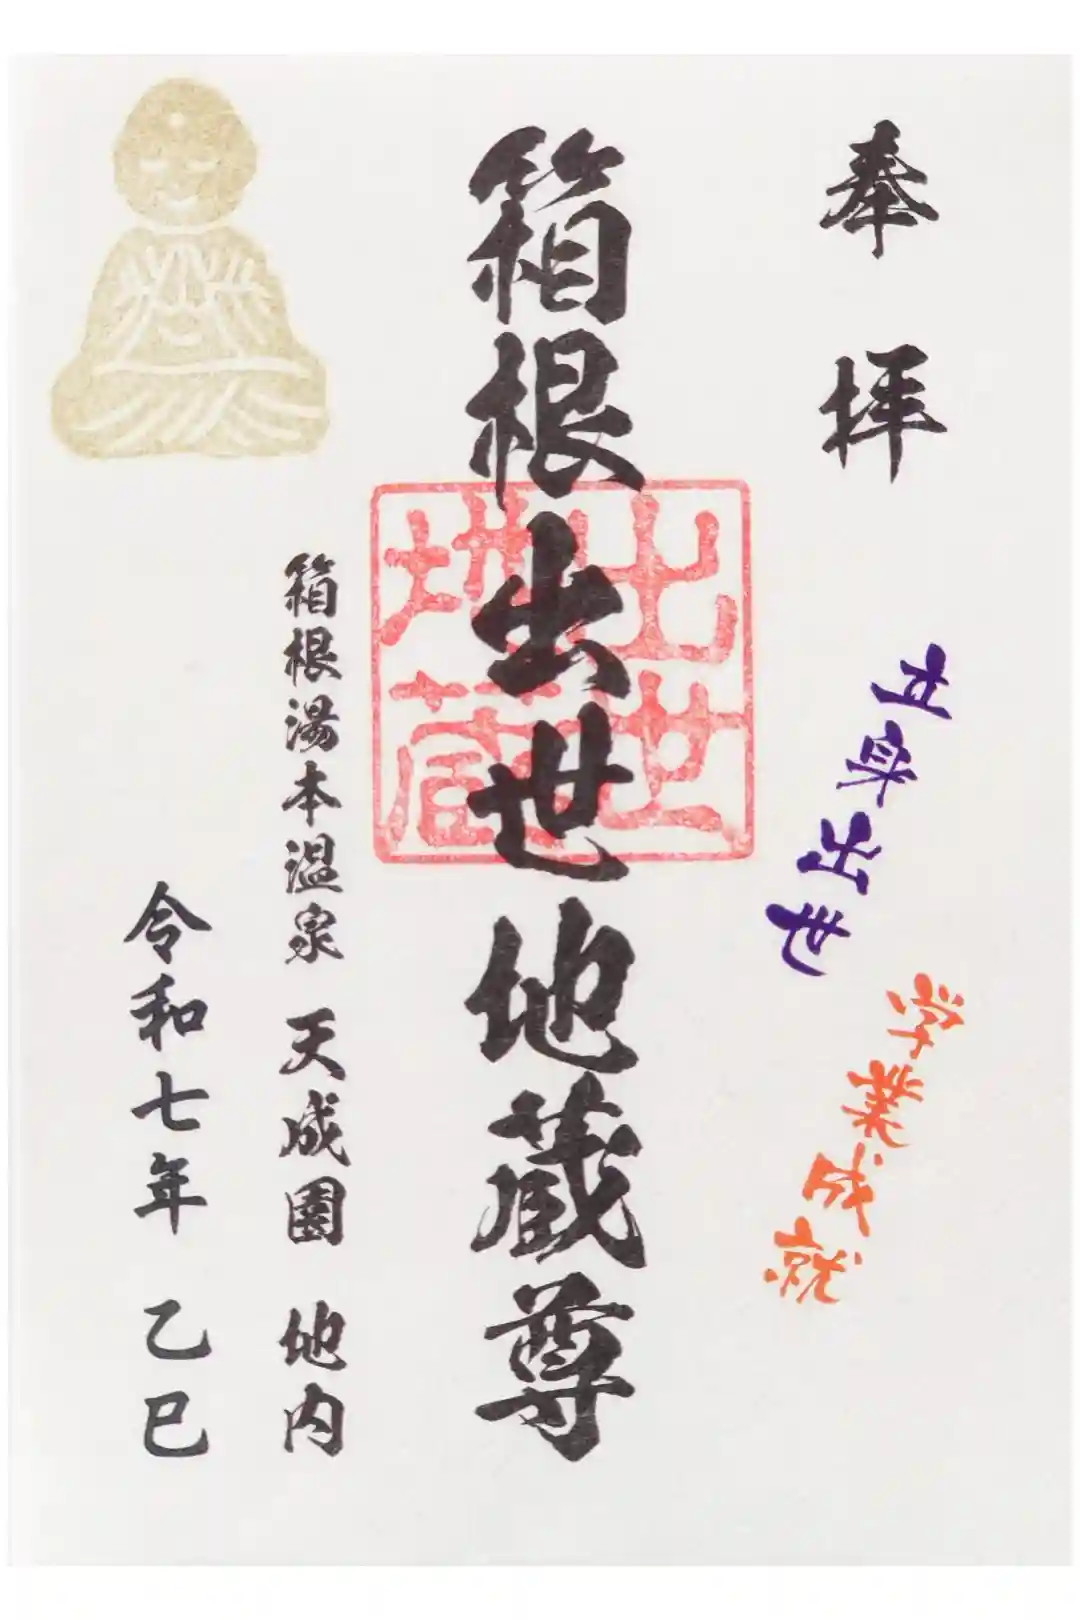 奉拝
立身出世
学業成就
箱根出世地蔵尊
出世
地蔵
箱根湯本温泉 天成園 地内
令和七年 乙巳